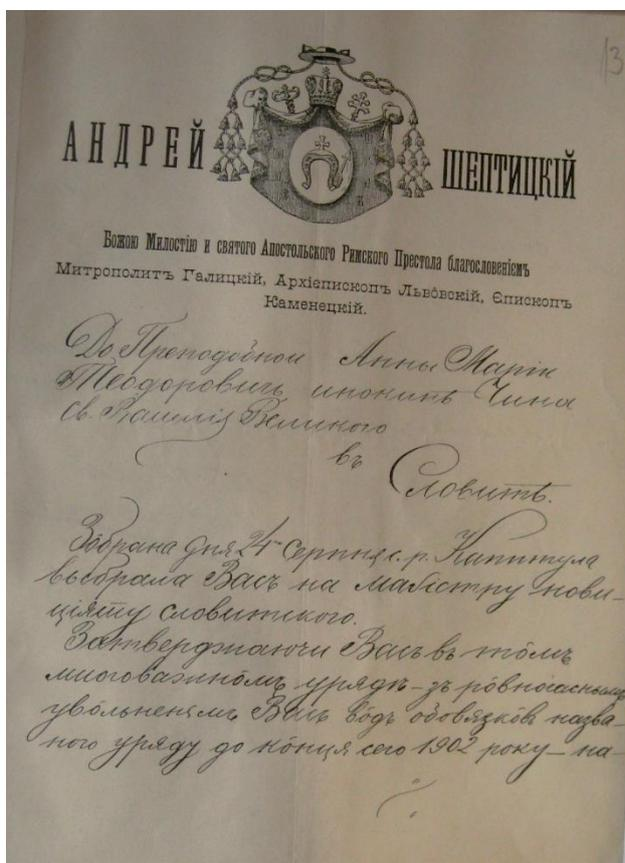 13
АНДРЕЙ ШЕПТИЦКІЙ
Божою Милостію и святого Апостольского Римского Престола благословеніємъ
Митрополитъ Галицкій, Архіепископъ Львôвскій, Єпископъ
Каменецкій.
До Преподобнои Анны Маріи
Теодоровичъ, инокинѣ Чина
св. Василія Великого
въ
Словитѣ.
Зôбрана дня 24 серпня с. р. Капитула
выбрала Васъ на магістру нови-
ціяту словитского.
Затверджаючи Васъ въ тôмъ
многоважнôмъ урядѣ – зъ рôвночаснымъ
увôльненямъ Васъ вôдъ обовязкôв назва-
ного уряду до кôнця сего 1902 року – на-